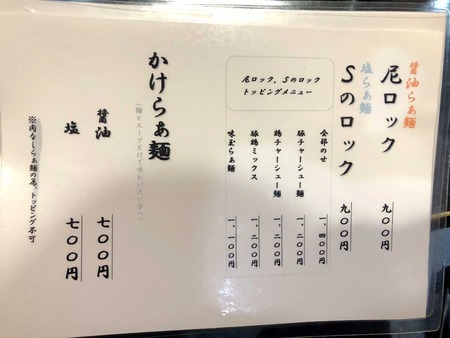 醤油らぁ麺
尼ロック 九〇〇円
塩らぁ麺
Sのロック 九〇〇円
尼ロック, Sのロック
トッピングメニュー
全部のせ 一,四〇〇円
豚チャーシュー麺 一,二〇〇円
鶏チャーシュー麺 一,二〇〇円
豚鶏ミックス 一,二〇〇円
味玉らぁ麺 一,一〇〇円
かけらぁ麺
(麺とスープだけで味わいたい方へ)
醤油 七〇〇円
塩 七〇〇円
※肉なしらぁ麺の為、トッピング不可